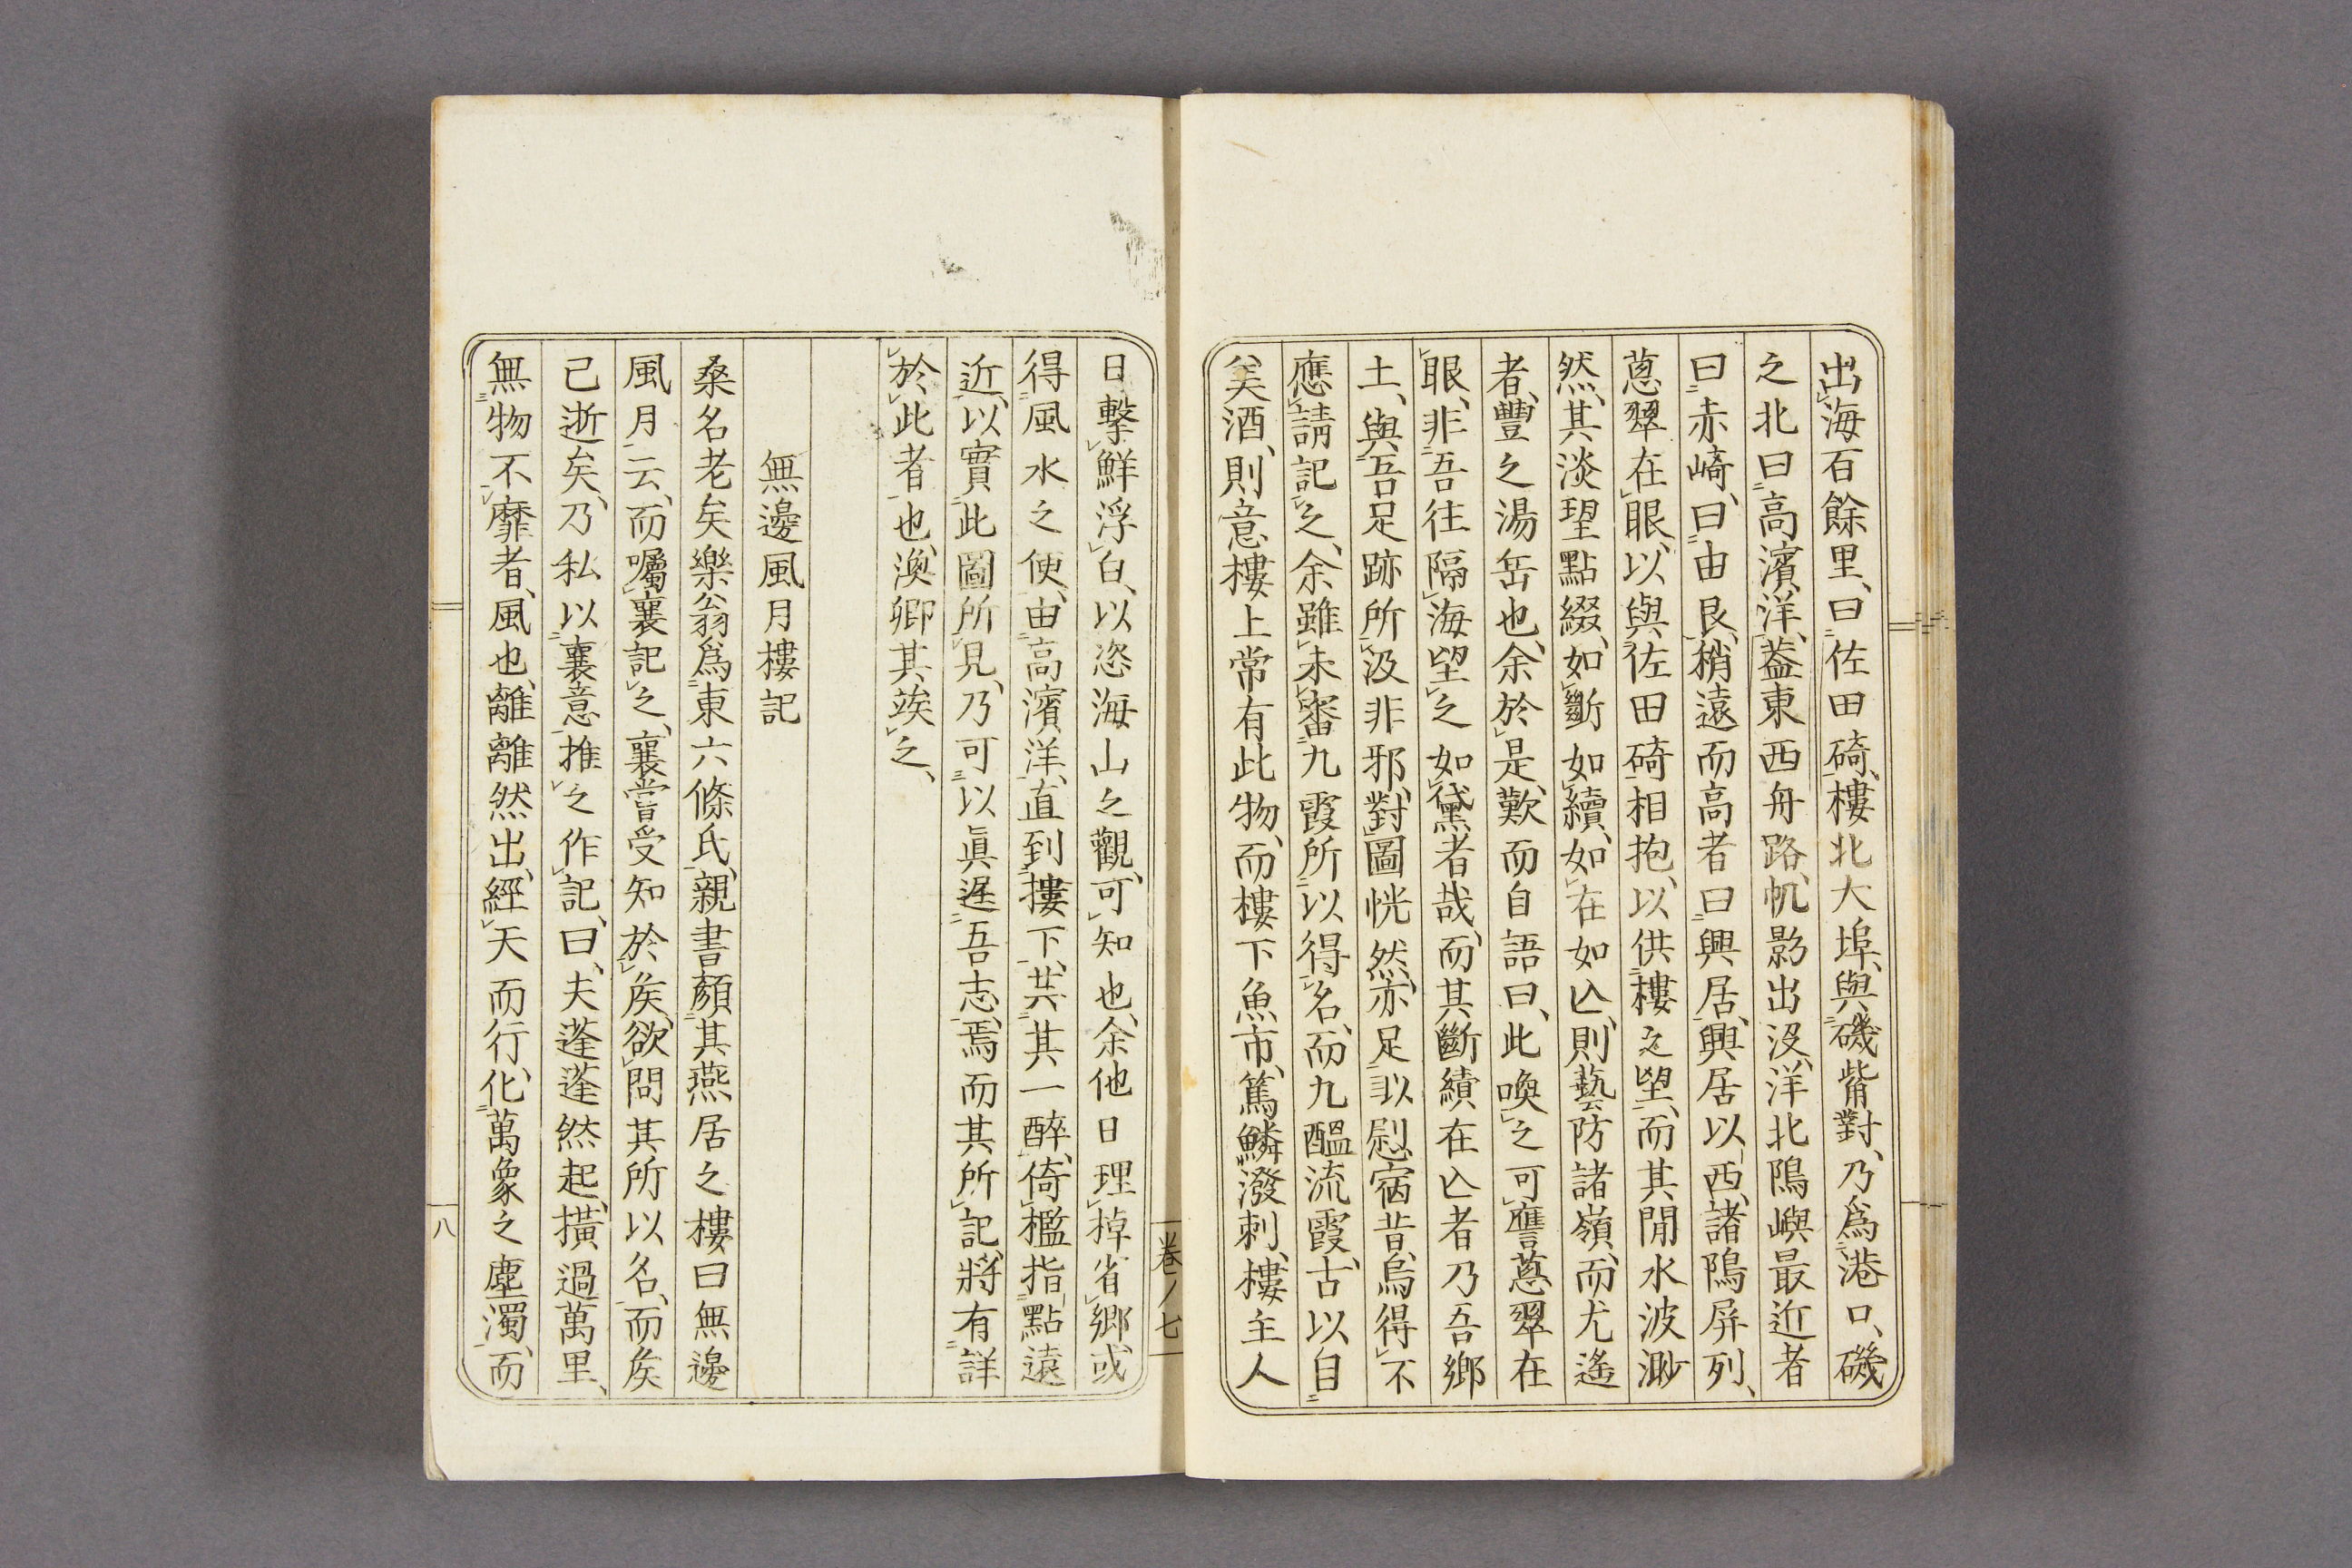 出海百餘里、曰佐田碕、樓北大埠、與磯觜對、乃爲港口、磯
之北曰高濱洋、蓋東西舟路、帆影出沒、洋北隝嶼最近者
曰赤崎、曰由良、稍遠而高者曰興居、興居以西、諸隝屏列、
蒽翠在眼、以與佐田碕相抱、以供樓之望、而其閒水波渺
然、其淡望點綴、如斷如續、如在如亾、則藝防諸嶺、而尤遙
者、豐之湯岳也、余於是歎而自語曰、此喚之可譍蒽翠在
眼、非吾往隔海望之如黛者哉、而其斷續在亾者乃吾鄉
土、與吾足跡所汲非邪、對圖恍然、亦足以慰宿昔、烏得不
應請記之、余雖未審九霞所以得名、而九醞流霞、古以自
矣酒、則意樓上常有此物、而樓下魚市、篤鱗潑刺、樓主人
日擊鮮浮白、以恣海山之觀、可知也、余他日理棹省鄉、或
得風水之便、由高濱洋、直到樓下、共其一醉、倚檻指點遠
近、以實此圖所見、乃可以眞遅吾志、焉而其所記、將有詳
於此者也、渙卿其竢之、
無邊風月樓記
桑名老矦樂翁爲東六條氏、親書顏其燕居之樓曰無邊
風月云、而囑襄記之、襄嘗受知於矦、欲問其所以名、而矦
己逝矣、乃私以襄意推之作記、曰、夫蓬蓬然起、橫過萬里、
無物不靡者、風也、離離然出、經天而行、化萬象之塵濁、而
卷ノ七
八